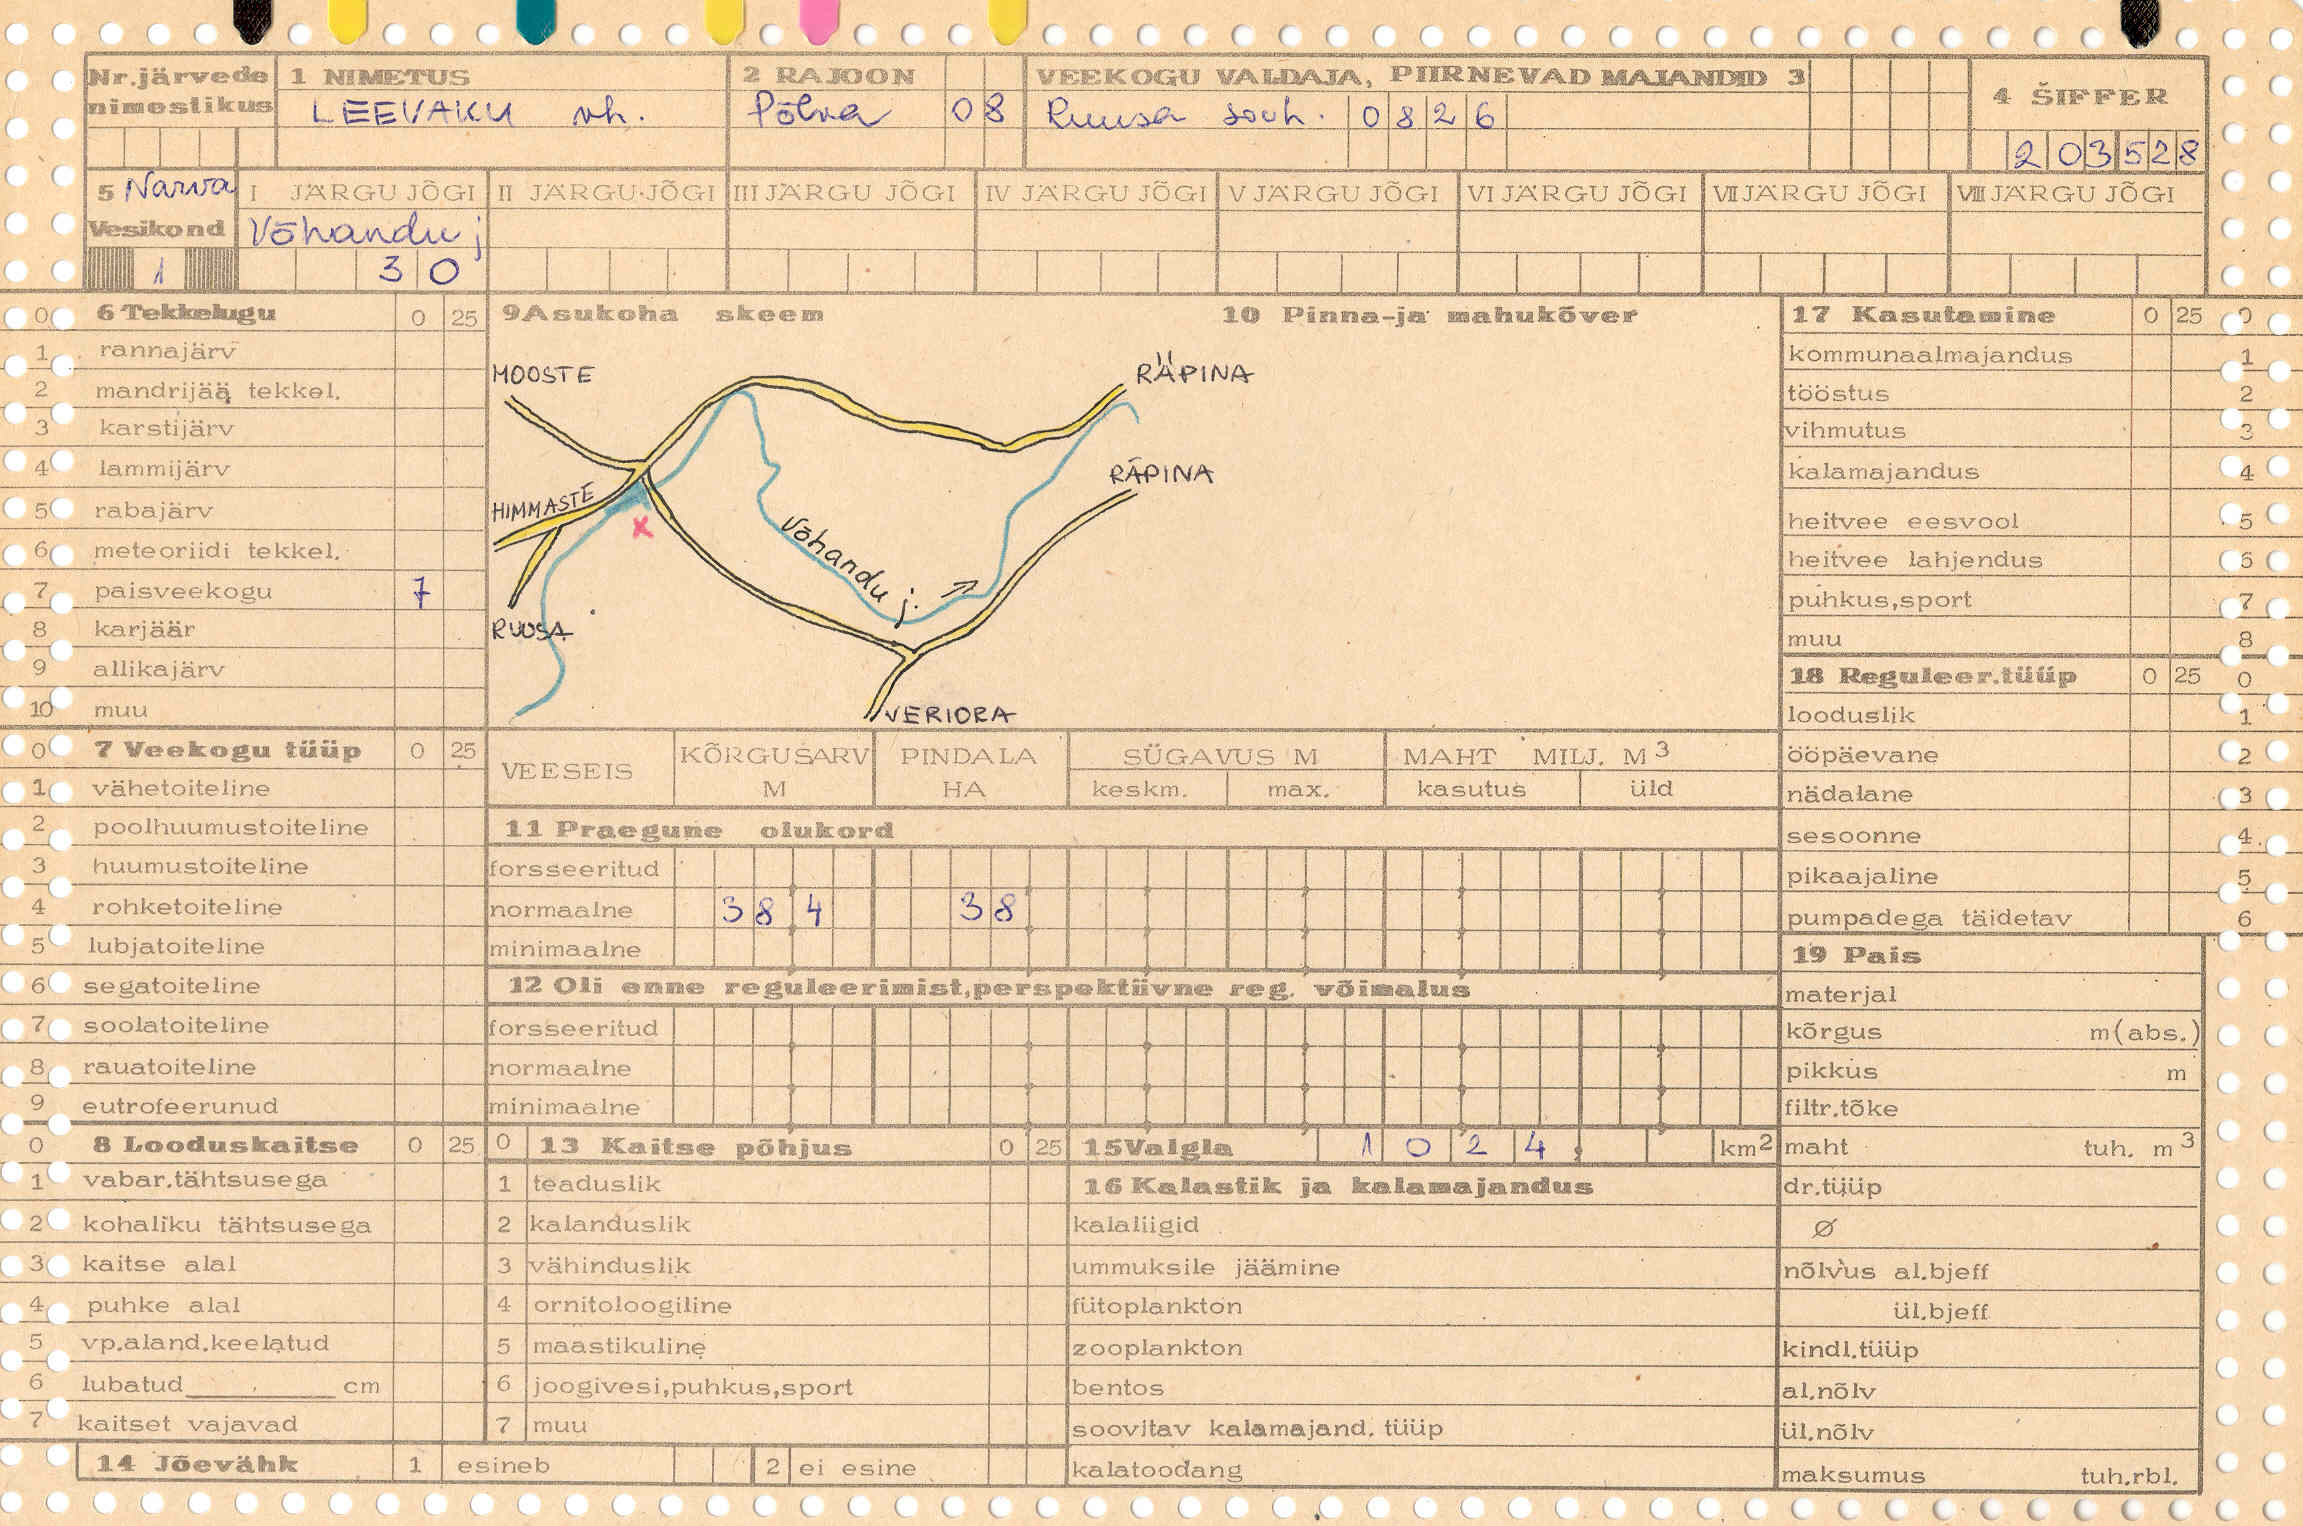 Nr.järvede nimestikus
1 NIMETUS
LEEVAKU vh.
2 RAJOON
Põlva 08
VEEKOGU VALDAJA, PIIRNEVAD MAJANDID 3
Ruusa sovh. 0826
4 ŠIFFER
203528
5 Narva
Vesikond
1
I JÄRGU JÕGI
Võhandu j
30
II JÄRGU JÕGI
III JÄRGU JÕGI
IV JÄRGU JÕGI
V JÄRGU JÕGI
VI JÄRGU JÕGI
VII JÄRGU JÕGI
VIII JÄRGU JÕGI
0 6 Tekkelugu 0 25
1 rannajärv
2 mandrijää tekkel.
3 karstijärv
4 lammijärv
5 rabajärv
6 meteoriidi tekkel.
7 paisveekogu 7
8 karjäär
9 allikajärv
10 muu
0 7 Veekogu tüüp 0 25
1 vähetoiteline
2 poolhuumustoiteline
3 huumustoiteline
4 rohketoiteline
5 lubjatoiteline
6 segatoiteline
7 soolatoiteline
8 rauatoiteline
9 eutrofeerunud
0 8 Looduskaitse 0 25
1 vabar.tähtsusega
2 kohaliku tähtsusega
3 kaitse alal
4 puhke alal
5 vp.aland.keelatud
6 lubatud cm
7 kaitset vajavad
9 Asukoha skeem
10 Pinna-ja mahukõver
MOOSTE
RÄPINA
RÄPINA
HIMMASTE
x
Võhandu j.
RUUSA
VERIORA
VEESEIS
KÕRGUSARV M
PINDALA HA
SÜGAVUS M
keskm. max.
MAHT MILJ. M3
kasutus üld
11 Praegune olukord
forsseeritud
normaalne 384 38
minimaalne
12 Oli enne reguleerimist,perspektiivne reg. võimalus
forsseeritud
normaalne
minimaalne
0 13 Kaitse põhjus 0 25
1 teaduslik
2 kalanduslik
3 vähinduslik
4 ornitoloogiline
5 maastikuline
6 joogivesi,puhkus,sport
7 muu
14 Jõevähk 1 esineb 2 ei esine
15 Valgla 1024, km2
16 Kalastik ja kalamajandus
kalaliigid
ummuksile jäämine
fütoplankton
zooplankton
bentos
soovitav kalamajand. tüüp
kalatoodang
17 Kasutamine 0 25 0
kommunaalmajandus 1
tööstus 2
vihmutus 3
kalamajandus 4
heitvee eesvool 5
heitvee lahjendus 6
puhkus,sport 7
muu 8
18 Reguleer.tüüp 0 25 0
looduslik 1
ööpäevane 2
nädalane 3
sesoonne 4
pikaajaline 5
pumpadega täidetav 6
19 Pais
materjal
kõrgus m(abs.)
pikkus m
filtr.tõke
maht tuh. m3
dr.tüüp
Ø
nõlvus al.bjeff
ül.bjeff
kindl.tüüp
al.nõlv
ül.nõlv
maksumus tuh.rbl.